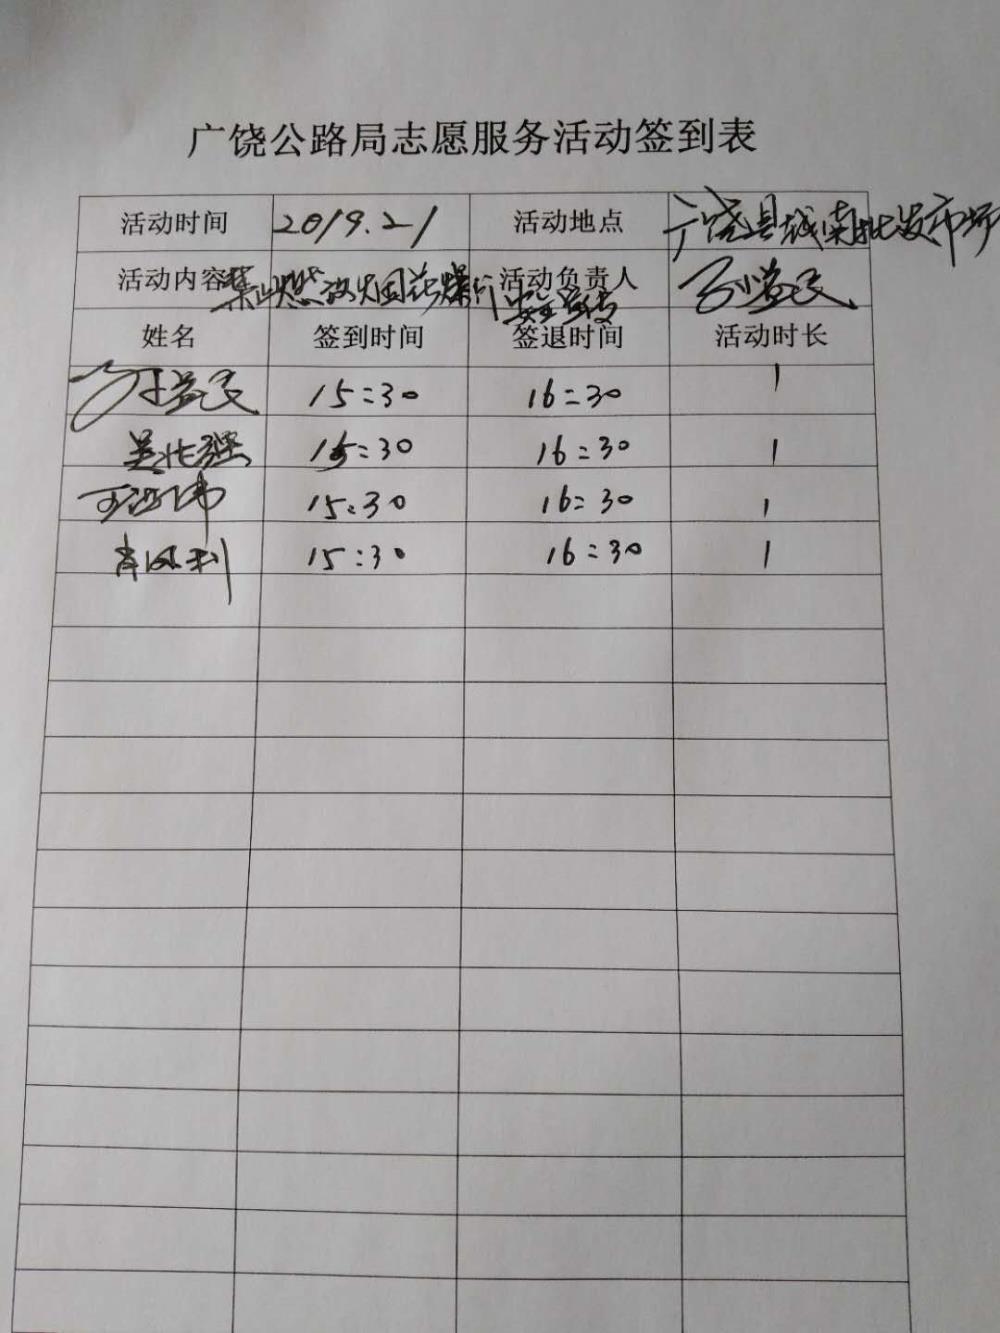 广饶公路局志愿服务活动签到表
活动时间 2019.2.1 活动地点 广饶县城南批发市场
活动内容 禁止燃放烟花爆竹安全宣传 活动负责人
姓名 签到时间 签退时间 活动时长
15:30 16:30 1
15:30 16:30 1
15:30 16:30 1
15:30 16:30 1